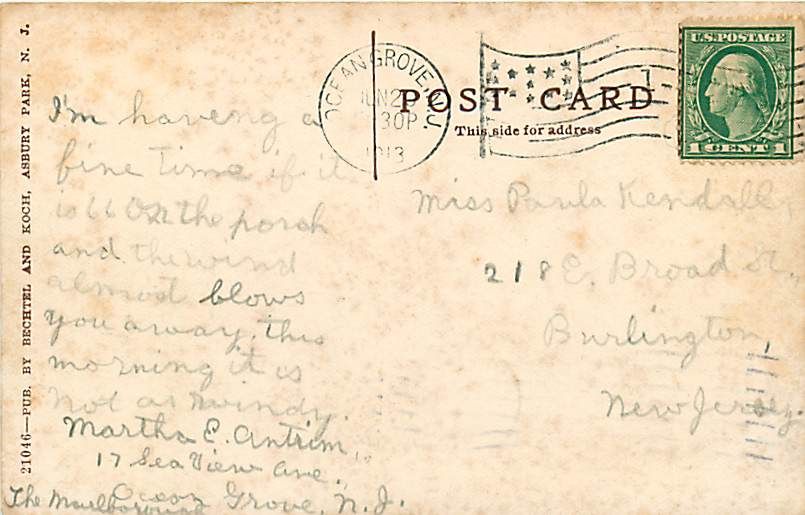 21046—PUB. BY BECHTEL AND KOCH, ASBURY PARK, N. J.
I'm haveng a
fine time if it
is 66 on the porch
and the wind
almost blows
you away. this
morning it is
not as windy.
Martha E. Antrim,
17 Sea View Ave.,
Ocean Grove, N.J.
The Marlborough
OCEAN GROVE, N.J.
JUN 2
30P
1913
POST CARD
This side for address
U.S. POSTAGE
1 CENT 1
Miss Paula Kendall,
218 E. Broad St.,
Burlington,
New Jersey